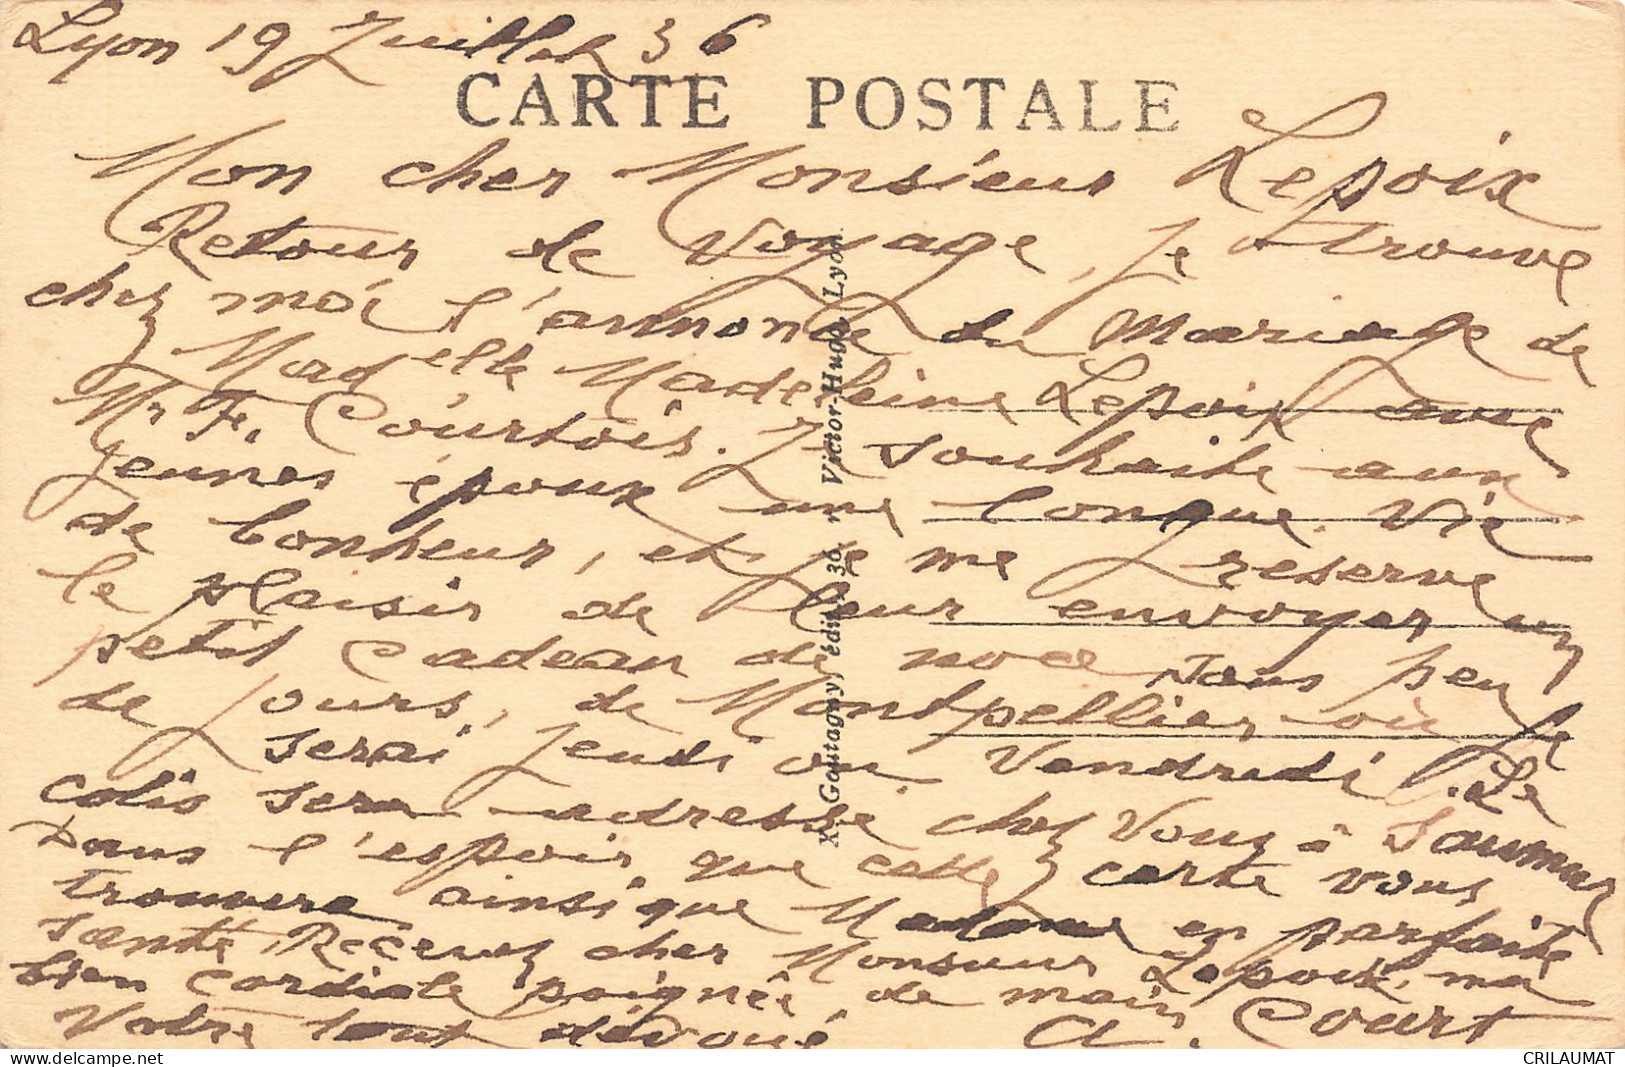 Lyon 19 Juillet 36
CARTE POSTALE
Mon cher Monsieur Lepoix
Retour de Voyage, Je trouve
chez moi l'annonce du Mariage de
Madelle Madeleine Lepoix avec
Mr F. Courtois. Je souhaite aux
jeunes époux une longue Vie
de bonheur, et je me reserve
le plaisir de leur envoyer un
petit cadeau de noce sous peu
de jours, de Montpellier où je
serai jeudi ou Vendredi. Le
colis sera adressé chez Vous à Saumur
Dans l'espoir que cette carte vous
trouvera ainsi que Madame en parfaite
santé, Recevez cher Monsieur Lepoix, ma
bien cordiale poignée de main
Votre tout dévoué A. Court
X. Goutagny, édit., 30, r. Victor-Hugo, Lyon
CRILAUMAT